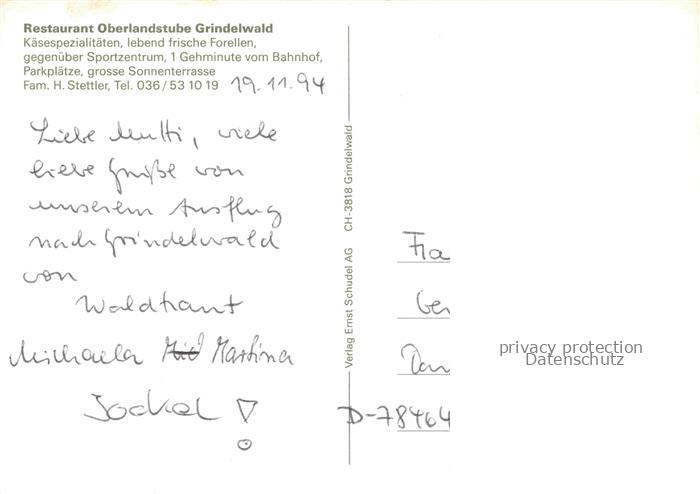 Restaurant Oberlandstube Grindelwald
Käsespezialitäten, lebend frische Forellen,
gegenüber Sportzentrum, 1 Gehminute vom Bahnhof,
Parkplätze, grosse Sonnenterrasse
Fam. H. Stettler, Tel. 036/53 10 19
19.11.94
Liebe Mutti, viele
liebe Grüße von
unserem Ausflug
nach Grindelwald
von
Waldtraut
Michaela Martina
Jockel !
Verlag Ernst Schudel AG CH-3818 Grindelwald
Fra
Ger
Dan
D-78464
privacy protection
Datenschutz